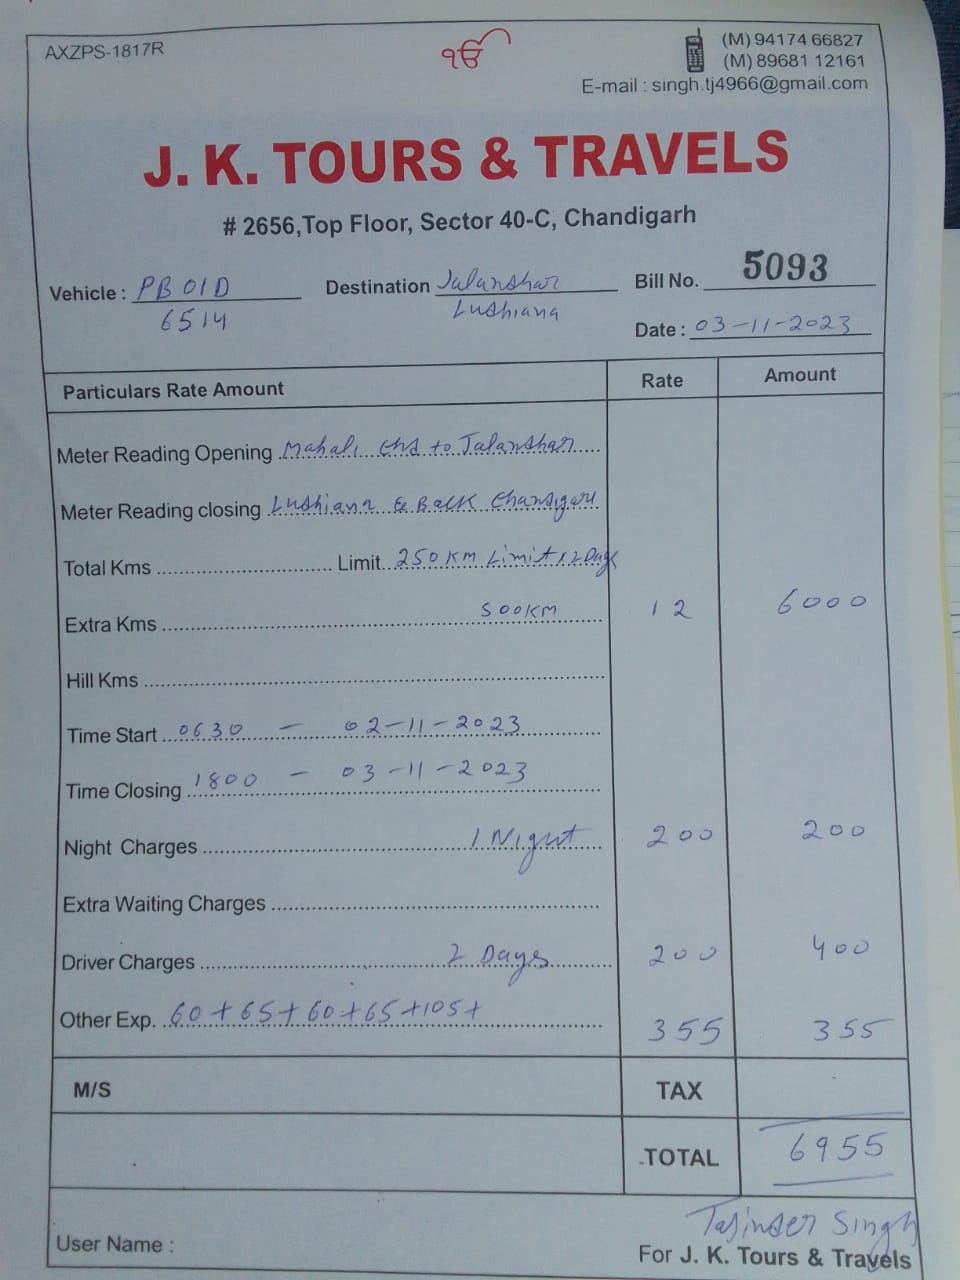 AXZPS-1817R
ੴ
(M) 94174 66827
(M) 89681 12161
E-mail : singh.tj4966@gmail.com
J. K. TOURS & TRAVELS
# 2656,Top Floor, Sector 40-C, Chandigarh
Vehicle : PB 01D 6514
Destination Jalandhar Ludhiana
Bill No. 5093
Date : 03-11-2023
Particulars Rate Amount Rate Amount
Meter Reading Opening Mahali Chd to Jalandhar
Meter Reading closing Ludhiana & Back Chandigarh
Total Kms Limit 250 KM Limit x 2 Days
Extra Kms 500KM 12 6000
Hill Kms
Time Start 0630 – 02-11-2023
Time Closing 1800 – 03-11-2023
Night Charges 1 Night 200 200
Extra Waiting Charges
Driver Charges 2 Days 200 400
Other Exp. 60+65+60+65+105+ 355 355
M/S TAX
TOTAL 6955
Tajinder Singh
User Name :
For J. K. Tours & Travels